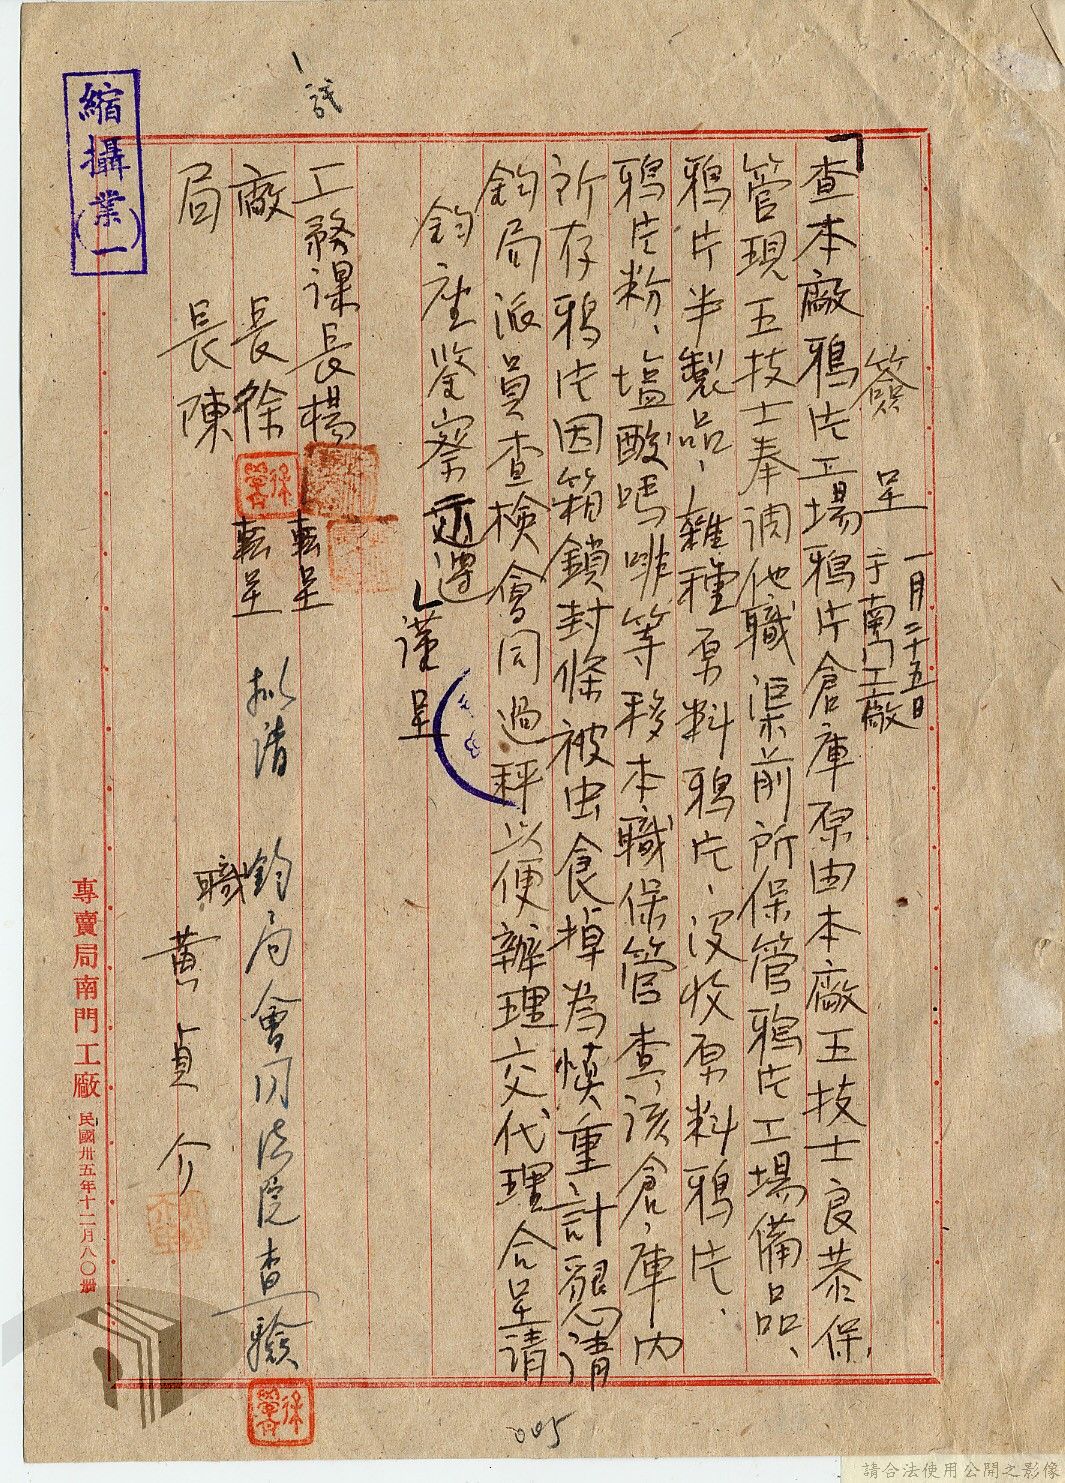 簽呈 一月二十五日
于南門工廠
查本廠鴉片工場鴉片倉庫原由本廠王技士良恭保
管現王技士奉調他職渠前所保管鴉片工場備品、
鴉片半製品、雜種原料鴉片、沒收原料鴉片、
鴉片粉、塩酸嗎啡等移本職保管查該倉庫內
所存鴉片因箱鎖封條被虫食掉為慎重計懇請
鈞局派員查檢會同過秤以便辦理交代理合呈請
鈞座鑒察
謹呈
工務課長楊 轉呈
廠長徐 轉呈
局長陳
職 黃貞介
擬請 鈞局會同法院查驗
縮攝業(一)
專賣局南門工廠 民國卅五年十二月八〇冊
005
請合法使用公開之影像